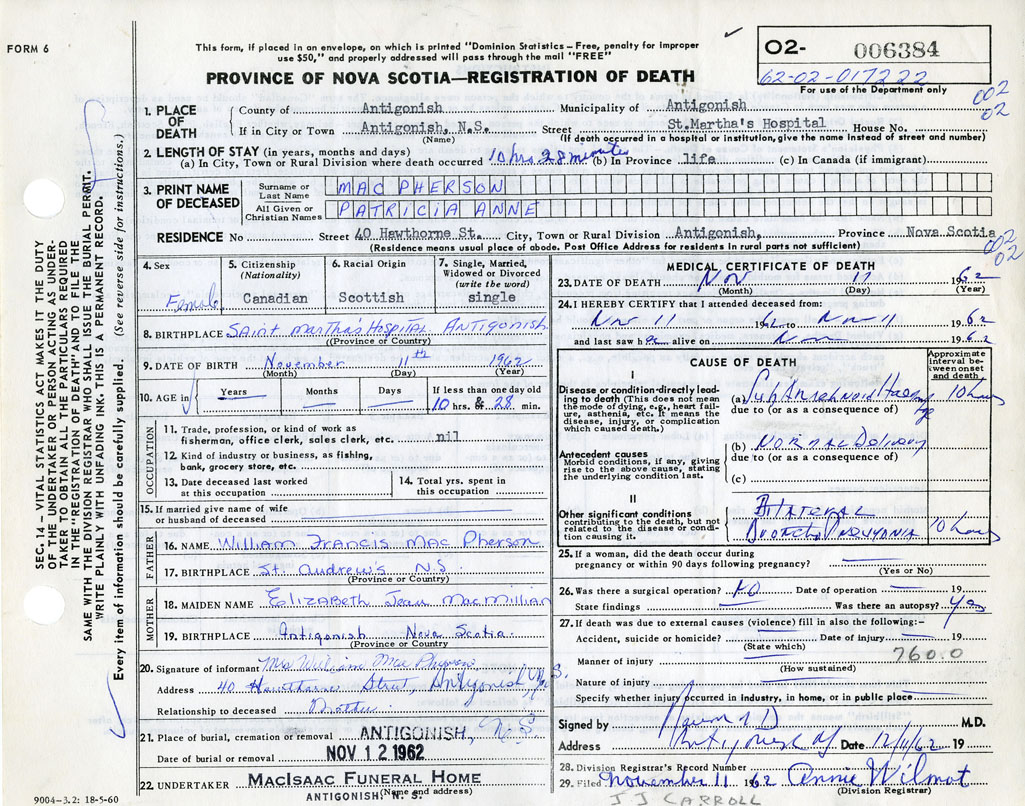 FORM 6
This form, if placed in an envelope, on which is printed "Dominion Statistics – Free, penalty for improper
use $50," and properly addressed will pass through the mail "FREE"
PROVINCE OF NOVA SCOTIA—REGISTRATION OF DEATH
O2- 006384
62-02-017222
For use of the Department only
002
02
1. PLACE OF DEATH
County of Antigonish Municipality of Antigonish
If in City or Town Antigonish, N.S. Street St.Martha's Hospital House No.
(Name) (If death occurred in a hospital or institution, give the name instead of street and number)
2. LENGTH OF STAY (in years, months and days)
(a) In City, Town or Rural Division where death occurred 10 hrs 28 minutes (b) In Province life (c) In Canada (if immigrant)
3. PRINT NAME OF DECEASED
Surname or Last Name MAC PHERSON
All Given or Christian Names PATRICIA ANNE
RESIDENCE No Street 40 Hawthorne St. City, Town or Rural Division Antigonish, Province Nova Scotia
(Residence means usual place of abode. Post Office Address for residents in rural parts not sufficient)
002
02
4. Sex Female
5. Citizenship (Nationality) Canadian
6. Racial Origin Scottish
7. Single, Married, Widowed or Divorced (write the word) single
8. BIRTHPLACE Saint Martha's Hospital ANTIGONISH
(Province or Country)
9. DATE OF BIRTH November 11th 1962
(Month) (Day) (Year)
10. AGE in Years Months Days If less than one day old
10 hrs. & 28 min.
OCCUPATION
11. Trade, profession, or kind of work as
fisherman, office clerk, sales clerk, etc. nil
12. Kind of industry or business, as fishing,
bank, grocery store, etc.
13. Date deceased last worked
at this occupation
14. Total yrs. spent in
this occupation
15. If married give name of wife
or husband of deceased
FATHER
16. NAME William Francis Mac Pherson
17. BIRTHPLACE St. Andrew's N.S
(Province or Country)
MOTHER
18. MAIDEN NAME Elizabeth Jean MacMillian
19. BIRTHPLACE Antigonish Nova Scotia.
(Province or Country)
20. Signature of informant Mrs William Mac Pherson
Address 40 Hawthorne Street, Antigonish, N.S.
Relationship to deceased Mother
21. Place of burial, cremation or removal ANTIGONISH, N S
Date of burial or removal NOV 12 1962
22. UNDERTAKER MacIsaac Funeral Home
(Name and address)
ANTIGONISH, N. S.
9004-3.2: 18-5-60
MEDICAL CERTIFICATE OF DEATH
23. DATE OF DEATH Nov 11 1962
(Month) (Day) (Year)
24. I HEREBY CERTIFY that I attended deceased from:
Nov 11 1962 to Nov 11 1962
and last saw her alive on Nov 1962
CAUSE OF DEATH
Approximate interval between onset and death
I
Disease or condition-directly leading to death (This does not mean the mode of dying, e.g., heart failure, asthenia, etc. It means the disease, injury, or complication which caused death.)
(a) SubArachnoid Haemorrhage 10 hours
due to (or as a consequence of)
(b) NORMAL Delivery
due to (or as a consequence of)
(c)
Antecedent causes
Morbid conditions, if any, giving rise to the above cause, stating the underlying condition last.
II
Other significant conditions
contributing to the death, but not related to the disease or condition causing it.
Bilateral
Broncho Pneumonia 10 hours
25. If a woman, did the death occur during
pregnancy or within 90 days following pregnancy?
(Yes or No)
26. Was there a surgical operation? NO Date of operation 19
State findings Was there an autopsy? Yes
27. If death was due to external causes (violence) fill in also the following:–
Accident, suicide or homicide? Date of injury 19
(State which)
Manner of injury 760.0
(How sustained)
Nature of injury
Specify whether injury occurred in industry, in home, or in public place
Signed by M.D.
Address Antigonish Date 12/11/62 19
28. Division Registrar's Record Number
29. Filed November 11 1962 Annie Wilmot
(Division Registrar)
J J CARROLL
SEC. 14 – VITAL STATISTICS ACT MAKES IT THE DUTY
OF THE UNDERTAKER OR PERSON ACTING AS UNDER-
TAKER TO OBTAIN ALL THE PARTICULARS REQUIRED
IN THE "REGISTRATION OF DEATH" AND TO FILE THE
SAME WITH THE DIVISION REGISTRAR WHO SHALL ISSUE THE BURIAL PERMIT.
WRITE PLAINLY WITH UNFADING INK. THIS IS A PERMANENT RECORD.
Every item of information should be carefully supplied. (See reverse side for instructions.)